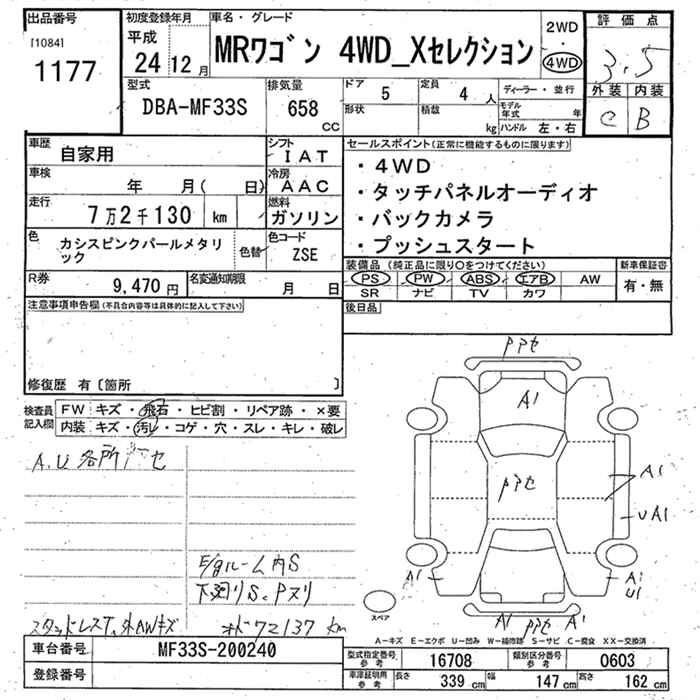 出品番号
[1084]
1177
初度登録年月
平成
24 12月
車名・グレード
MRワゴン 4WD_Xセレクション
2WD
・
4WD
評価点
3.5
外装 内装
C B
型式
DBA-MF33S
排気量
658
CC
ドア
5
形状
定員
4 人
積載
kg
ディーラー・並行
モデル年式 年
ハンドル 左・右
車歴
自家用
シフト
IAT
車検
年 月( 日)
冷房
AAC
走行
7万2千130 km
燃料
ガソリン
色
カシスピンクパールメタリ
ック
色替
色コード
ZSE
R券
9,470 円
名変通知期限
月 日
セールスポイント(正常に機能するものに限ります)
・4WD
・タッチパネルオーディオ
・バックカメラ
・プッシュスタート
装備品(純正品に限り○をつけてください)
PS PW ABS エアB AW
SR ナビ TV カワ
新車保証書
有・無
後日品
注意事項申告欄(不具合内容等は具体的に記入して下さい)
修復歴 有〔箇所 〕
検査員
記入欄
FW キズ・飛石・ヒビ割・リペア跡・×要
内装 キズ・汚レ・コゲ・穴・スレ・キレ・破レ
A.U 各所
E/gルーム内S
下廻りS、Pヌリ
スタッドレスT、外AWキズ
オド72137 km
A1
A1
UA1
A1
A1
U1
A1
A1
スペア
A-キズ E-エクボ U-凹み W-補修跡 S-サビ C-腐食 XX-交換済
車台番号
MF33S-200240
登録番号
型式指定番号
参考
16708
類別区分番号
参考
0603
車庫証明用
参考
長さ
339 cm
幅
147 cm
高さ
162 cm